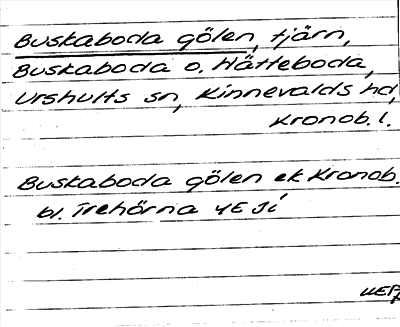 Buskaboda gölen, tjärn,
Buskaboda o. Hätteboda,
Urshults sn, Kinnevalds hd,
Kronob. l.
Buskaboda gölen ek Kronob.
bl. Trehörna 4E Ji